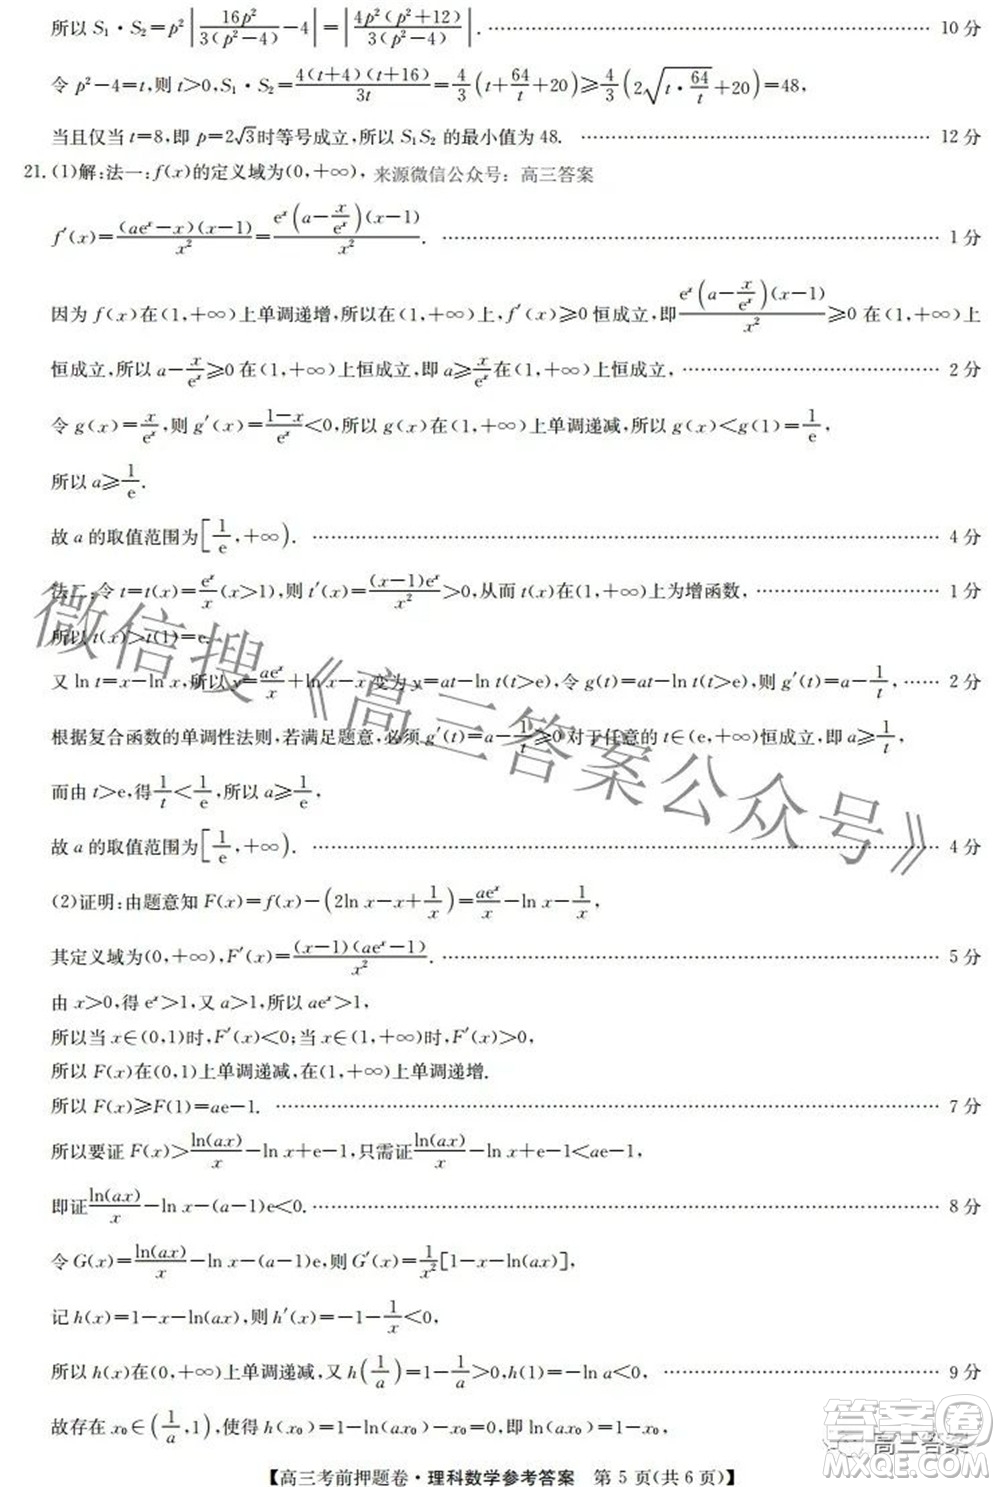 所以 S₁·S₂=p²|16p²/3(p²−4)−4|=|4p²(p²+12)/3(p²−4)|. 10 分
令 p²−4=t,则 t>0,S₁·S₂=4(t+4)(t+16)/3t=4/3(t+64/t+20)≥4/3(2√(t·64/t)+20)=48,
当且仅当 t=8,即 p=2√3时等号成立,所以 S₁S₂ 的最小值为 48. 12 分
21. (1)解:法一:f(x)的定义域为(0,+∞), 来源微信公众号:高三答案
f′(x)=(aeˣ−x)(x−1)/x²=eˣ(a−x/eˣ)(x−1)/x². 1 分
因为 f(x)在(1,+∞)上单调递增,所以在(1,+∞)上,f′(x)≥0 恒成立,即eˣ(a−x/eˣ)(x−1)/x²≥0 在(1,+∞)上
恒成立,所以 a−x/eˣ≥0 在(1,+∞)上恒成立,即 a≥x/eˣ在(1,+∞)上恒成立, 2 分
令 g(x)=x/eˣ,则 g′(x)=1−x/eˣ<0,所以 g(x)在(1,+∞)上单调递减,所以 g(x)<g(1)=1/e,
所以 a≥1/e.
故 a 的取值范围为[1/e,+∞). 4 分
法二:令 t=t(x)=eˣ/x(x>1),则 t′(x)=(x−1)eˣ/x²>0,从而 t(x)在(1,+∞)上为增函数, 1 分
所以 t(x)>t(1)=e.
又 ln t=x−ln x,所以 y=aeˣ/x+ln x−x 变为 y=at−ln t(t>e),令 g(t)=at−ln t(t>e),则 g′(t)=a−1/t, 2 分
根据复合函数的单调性法则,若满足题意,必须 g′(t)=a−1/t≥0 对于任意的 t∈(e,+∞)恒成立,即 a≥1/t,
而由 t>e,得1/t<1/e,所以 a≥1/e,
故 a 的取值范围为[1/e,+∞). 4 分
(2)证明:由题意知 F(x)=f(x)−(2ln x−x+1/x)=aeˣ/x−ln x−1/x,
其定义域为(0,+∞),F′(x)=(x−1)(aeˣ−1)/x². 5 分
由 x>0,得 eˣ>1,又 a>1,所以 aeˣ>1,
所以当 x∈(0,1)时,F′(x)<0;当 x∈(1,+∞)时,F′(x)>0,
所以 F(x)在(0,1)上单调递减,在(1,+∞)上单调递增.
所以 F(x)≥F(1)=ae−1. 7 分
所以要证 F(x)>ln(ax)/x−ln x+e−1,只需证ln(ax)/x−ln x+e−1<ae−1,
即证ln(ax)/x−ln x−(a−1)e<0. 8 分
令 G(x)=ln(ax)/x−ln x−(a−1)e,则 G′(x)=1/x²[1−x−ln(ax)],
记 h(x)=1−x−ln(ax),则 h′(x)=−1−1/x<0,
所以 h(x)在(0,+∞)上单调递减,又 h(1/a)=1−1/a>0,h(1)=−ln a<0, 9 分
故存在 x₀∈(1/a,1),使得 h(x₀)=1−ln(ax₀)−x₀=0,即 ln(ax₀)=1−x₀,
【高三考前押题卷·理科数学参考答案 第 5 页(共 6 页)】
微信搜《高三答案公众号》
高三答案
答案圈
MXQE.COM